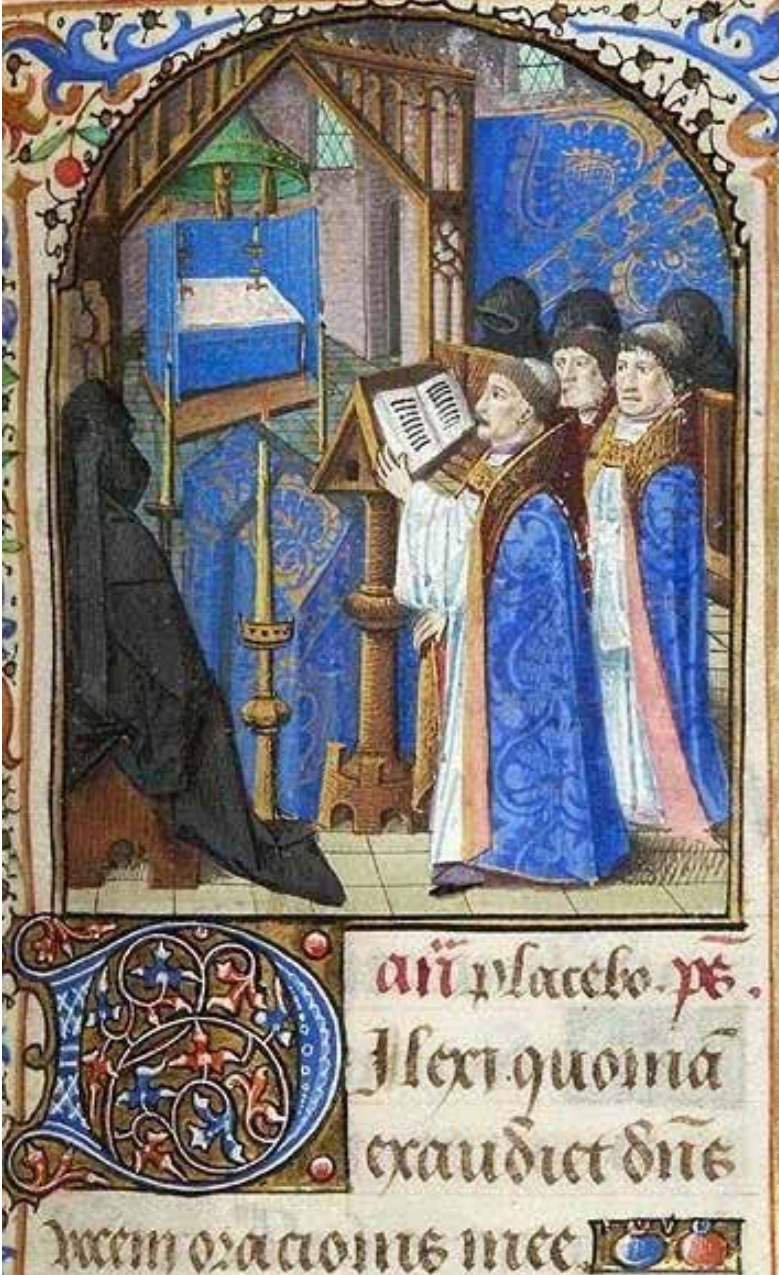 an̄ placebo. ps̄.
Dilexi quoniā
exaudiet dn̄s
vocem oracionis mee